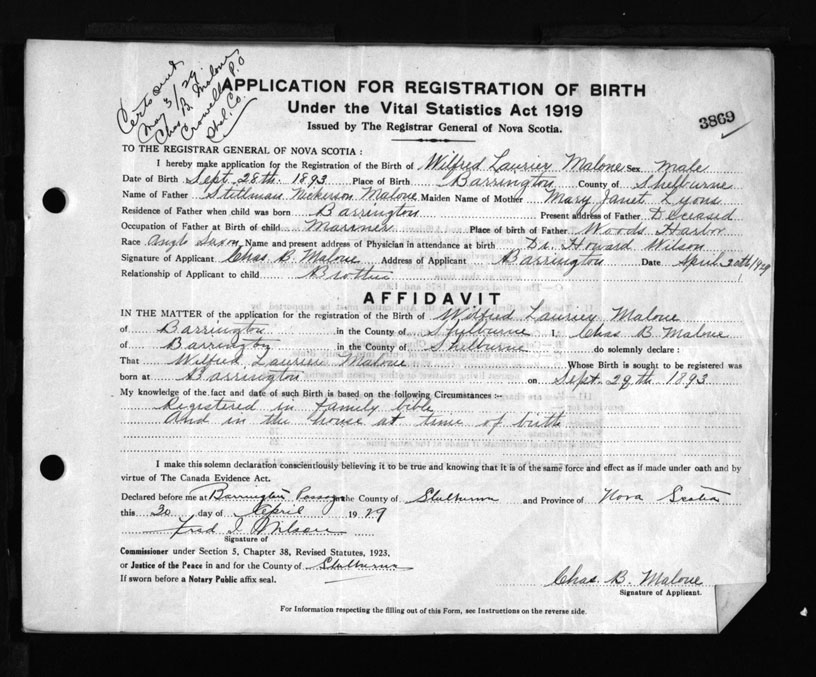 Cert sent
May 3/29
Chas B. Malone
Crowells P.O
Shel. Co.
APPLICATION FOR REGISTRATION OF BIRTH
Under the Vital Statistics Act 1919
Issued by The Registrar General of Nova Scotia.
3869
TO THE REGISTRAR GENERAL OF NOVA SCOTIA :
I hereby make application for the Registration of the Birth of Wilfred Laurier Malone Sex Male
Date of Birth Sept. 28th. 1893 Place of Birth Barrington County of Shelburne
Name of Father Stillman Nickerson Malone Maiden Name of Mother Mary Janet Lyons
Residence of Father when child was born Barrington Present address of Father Deceased
Occupation of Father at Birth of child Mariner Place of birth of Father Woods Harbor
Race Anglo Saxon Name and present address of Physician in attendance at birth Dr. Howard Wilson
Signature of Applicant Chas B. Malone Address of Applicant Barrington Date April 20th/1929
Relationship of Applicant to child Brother
AFFIDAVIT
IN THE MATTER of the application for the registration of the Birth of Wilfred Laurier Malone
of Barrington in the County of Shelburne I, Chas B. Malone
of Barrington in the County of Shelburne do solemnly declare :
That Wilfred Laurier Malone Whose Birth is sought to be registered was
born at Barrington on Sept. 28th 1893
My knowledge of the fact and date of such Birth is based on the following Circumstances :-
Registered in family bible
And in the house at time of birth
I make this solemn declaration conscientiously believing it to be true and knowing that it is of the same force and effect as if made under oath and by
virtue of The Canada Evidence Act.
Declared before me at Barrington Passage in the County of Shelburne and Province of Nova Scotia
this 20 day of April 1929
Fred I. Wilson
Signature of
Commissioner under Section 5, Chapter 38, Revised Statutes, 1923,
or Justice of the Peace in and for the County of Shelburne
If sworn before a Notary Public affix seal.
Chas. B. Malone
Signature of Applicant.
For Information respecting the filling out of this Form, see Instructions on the reverse side.